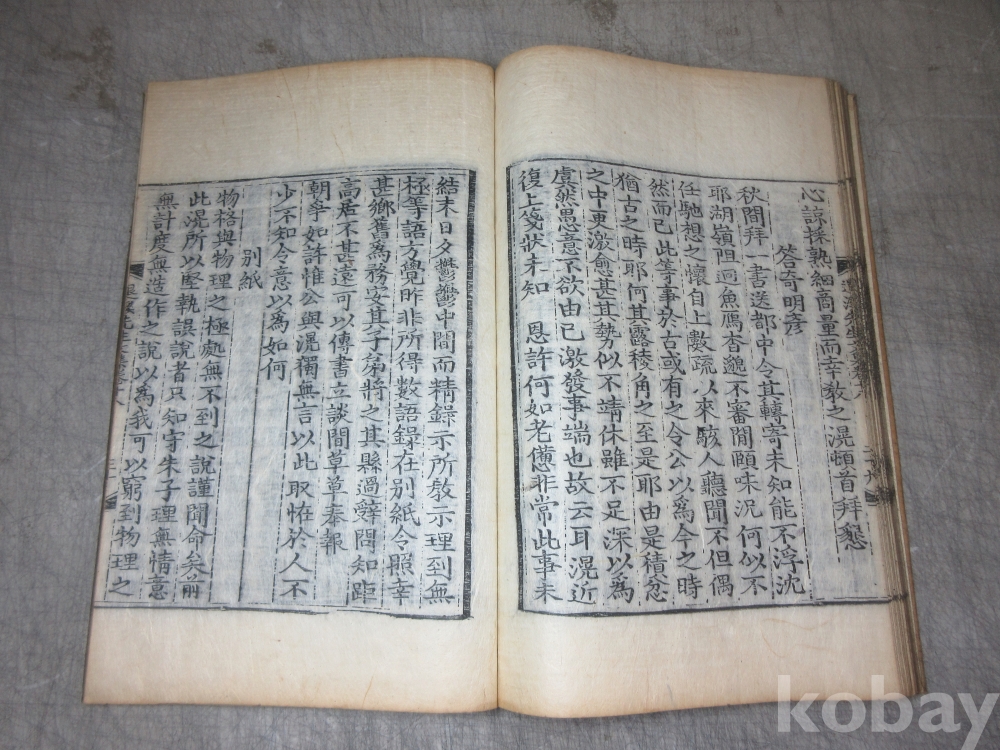 心諒採熟細商量而辛敎之滉頓首拜懇
答奇明彦
秋間拜一書送都中令其轉寄未知能不浮沈
耶湖嶺阻逈魚鴈杳邈不審閒頤味況何似不
任馳想之懷自上數疏以來駭人聽聞不但偶
然而已此等事於古或有之令公以爲今之時
猶古之時耶何其露稜角之至是耶由是積忿
之中更激愈甚其勢似不靖休雖不足深以爲
虞然愚意不欲由已激發事端也故云耳滉近
復上箋狀未知 恩許何如老憊非常此事未
結末日夕鬱鬱中間而精錄示所敎示理到無
極等語方覺昨非所得數語錄在別紙令照幸
甚鄕舊爲務安其子弟將之其縣過辭問知距
高居不甚遠可以傳書立談間草草奉報
朝爭如許惟公與滉獨無言以此取怪於人不
少不知令意以爲如何
別紙
物格與物理之極處無不到之說謹聞命矣前
此滉所以堅執誤說者只知守朱子理無情意
無計度無造作之說以爲我可以窮到物理之
kobay